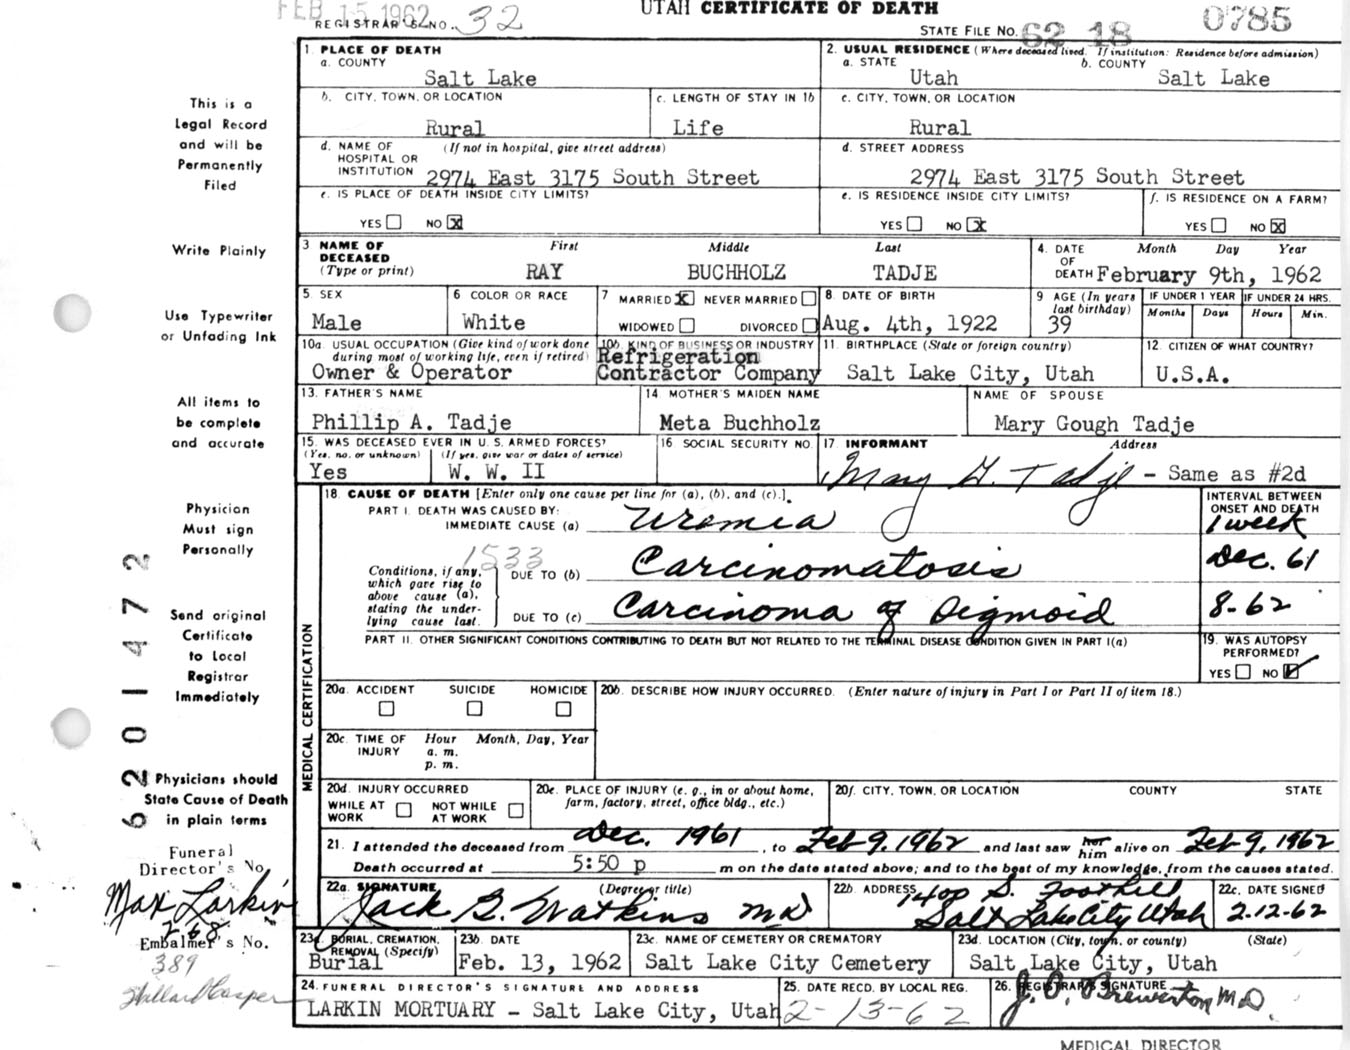 FEB 15 1962
UTAH CERTIFICATE OF DEATH
REGISTRAR'S NO. 32
STATE FILE NO. 62 18 0785
1. PLACE OF DEATH
a. COUNTY
Salt Lake
2. USUAL RESIDENCE (Where deceased lived. If institution: Residence before admission)
a. STATE b. COUNTY
Utah Salt Lake
b. CITY, TOWN, OR LOCATION c. LENGTH OF STAY IN 1b c. CITY, TOWN, OR LOCATION
Rural Life Rural
d. NAME OF HOSPITAL OR INSTITUTION (If not in hospital, give street address) d. STREET ADDRESS
2974 East 3175 South Street 2974 East 3175 South Street
e. IS PLACE OF DEATH INSIDE CITY LIMITS? e. IS RESIDENCE INSIDE CITY LIMITS? f. IS RESIDENCE ON A FARM?
YES NO X YES NO X YES NO X
3 NAME OF DECEASED (Type or print) First Middle Last 4. DATE OF DEATH Month Day Year
RAY BUCHHOLZ TADJE February 9th, 1962
5. SEX 6 COLOR OR RACE 7 MARRIED X NEVER MARRIED WIDOWED DIVORCED 8. DATE OF BIRTH 9 AGE (In years last birthday) IF UNDER 1 YEAR IF UNDER 24 HRS.
Months Days Hours Min.
Male White Aug. 4th, 1922 39
10a. USUAL OCCUPATION (Give kind of work done during most of working life, even if retired) 10b. KIND OF BUSINESS OR INDUSTRY 11. BIRTHPLACE (State or foreign country) 12. CITIZEN OF WHAT COUNTRY?
Owner & Operator Refrigeration Contractor Company Salt Lake City, Utah U.S.A.
13. FATHER'S NAME 14 MOTHER'S MAIDEN NAME NAME OF SPOUSE
Phillip A. Tadje Meta Buchholz Mary Gough Tadje
15. WAS DECEASED EVER IN U.S. ARMED FORCES? 16 SOCIAL SECURITY NO. 17. INFORMANT Address
(Yes, no. or unknown) (If yes, give war or dates of service)
Yes W. W. II Mary G. Tadje - Same as #2d
MEDICAL CERTIFICATION
18. CAUSE OF DEATH [Enter only one cause per line for (a), (b), and (c).]
INTERVAL BETWEEN ONSET AND DEATH
PART I. DEATH WAS CAUSED BY:
IMMEDIATE CAUSE (a) Uremia 1 week
1533
Conditions, if any, which gave rise to above cause (a), stating the underlying cause last.
DUE TO (b) Carcinomatosis Dec. 61
DUE TO (c) Carcinoma of Sigmoid 8-62
PART II. OTHER SIGNIFICANT CONDITIONS CONTRIBUTING TO DEATH BUT NOT RELATED TO THE TERMINAL DISEASE CONDITION GIVEN IN PART I(a)
19. WAS AUTOPSY PERFORMED?
YES NO
20a. ACCIDENT SUICIDE HOMICIDE 20b. DESCRIBE HOW INJURY OCCURRED. (Enter nature of injury in Part I or Part II of item 18.)
20c. TIME OF INJURY Hour Month, Day, Year
a. m.
p. m.
20d. INJURY OCCURRED 20e. PLACE OF INJURY (e. g., in or about home, farm, factory, street, office bldg., etc.) 20f. CITY, TOWN, OR LOCATION COUNTY STATE
WHILE AT WORK NOT WHILE AT WORK
21. I attended the deceased from Dec. 1961, to Feb 9, 1962 and last saw her him alive on Feb 9, 1962
Death occurred at 5:50 p m on the date stated above; and to the best of my knowledge, from the causes stated.
22a. SIGNATURE (Degree or title) 22b. ADDRESS 22c. DATE SIGNED
Jack G. Watkins MD 1400 S. Foothill Salt Lake City Utah 2-12-62
23a. BURIAL, CREMATION, REMOVAL (Specify) 23b. DATE 23c. NAME OF CEMETERY OR CREMATORY 23d. LOCATION (City, town, or county) (State)
Burial Feb. 13, 1962 Salt Lake City Cemetery Salt Lake City, Utah
24. FUNERAL DIRECTOR'S SIGNATURE AND ADDRESS 25. DATE RECD. BY LOCAL REG. 26. REGISTRAR'S SIGNATURE
LARKIN MORTUARY - Salt Lake City, Utah 2-13-62 J. O. Brewerton M D.
MEDICAL DIRECTOR
This is a
Legal Record
and will be
Permanently
Filed
Write Plainly
Use Typewriter
or Unfading Ink
All items to
be complete
and accurate
Physician
Must sign
Personally
Send original
Certificate
to Local
Registrar
Immediately
Physicians should
State Cause of Death
in plain terms
6201472
Funeral
Director's No.
Max Larkin
268
Embalmer's No.
389